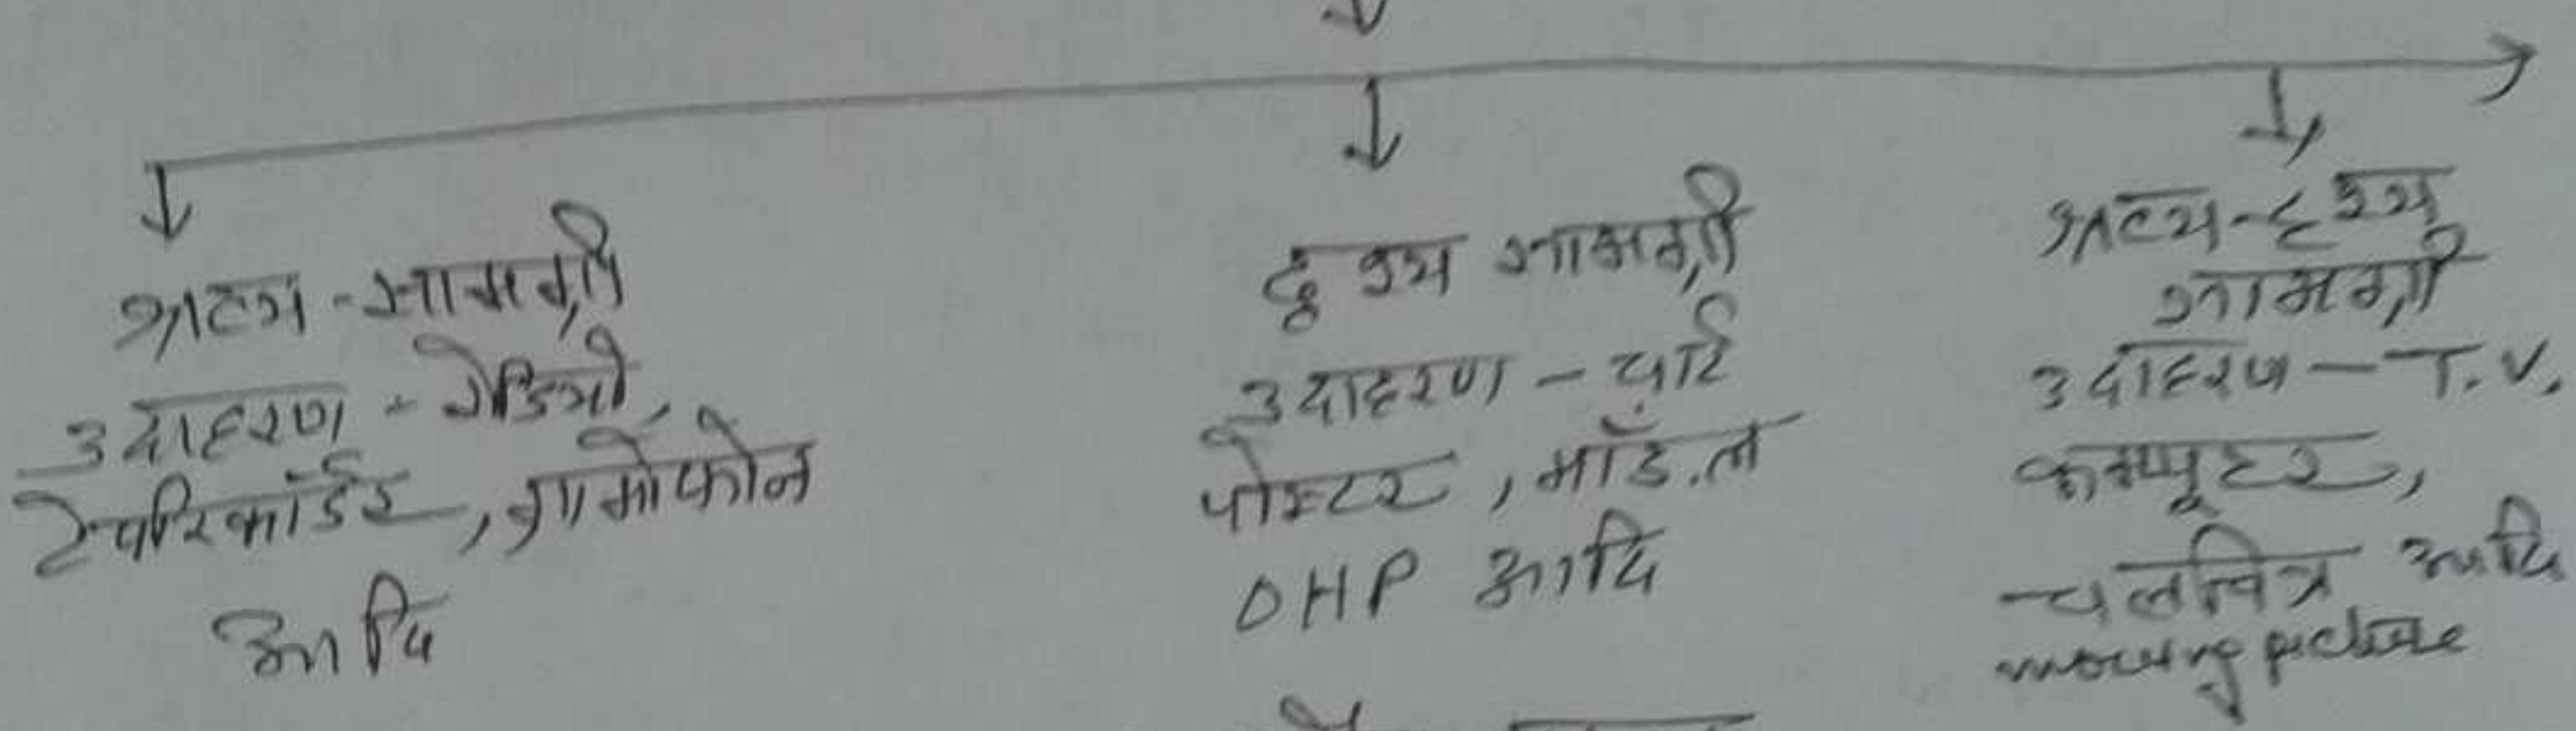 श्रव्य-सामग्री
उदाहरण - रेडियो,
टेपरिकॉर्डर, ग्रामोफोन
आदि
दृश्य सामग्री
उदाहरण - चार्ट
पोस्टर, मॉडल
OHP आदि
श्रव्य-दृश्य
सामग्री
उदाहरण - T.V.
कम्प्यूटर,
चलचित्र आदि
moving picture